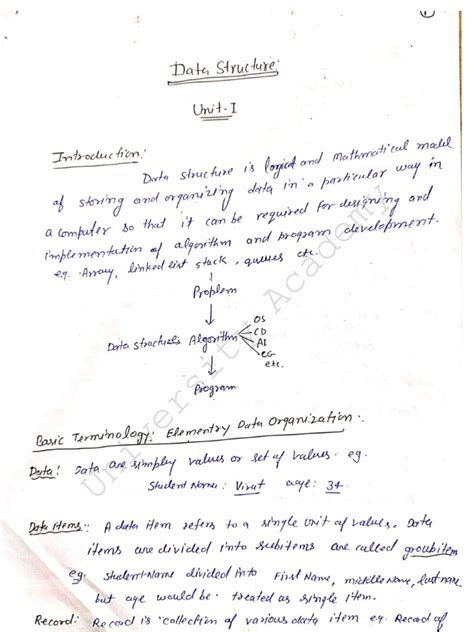 1
Data Structure:
Unit-I
Introduction:
Data structure is logical and Mathmatical model
of storing and organizing data in a particular way in
a computer so that it can be required for designing and
implementation of algorithm and program development.
eg. Array, linked list stack, queues etc.
Problem
Data structures Algorithm
OS
CD
AI
CG
etc.
Program
Basic Terminology: Elementry Data Organization:
Data: Data are simply values or set of values. eg.
Student Name: Virat age: 34
Data items:: A data item refers to a single unit of values. Data
items are divided into subitems are called groupitem
eg. Student Name divided into First Name, middle Name, last name
but age would be treated as single item.
Record: Record is collection of various data item eg. Record of
University Academy